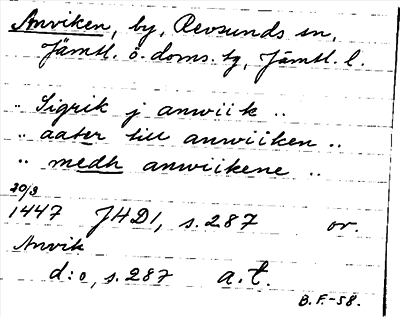 Anviken, by, Revsunds sn,
Jämtl. ö. doms. tg, Jämtl. l.
.. Sigrik j anwiik ..
.. aater till anwiiken ..
.. medh anwiikene ..
20/3
1447 JHD1, s. 287 or.
Anvik
d:o, s. 287 a.t.
B.F.-58.